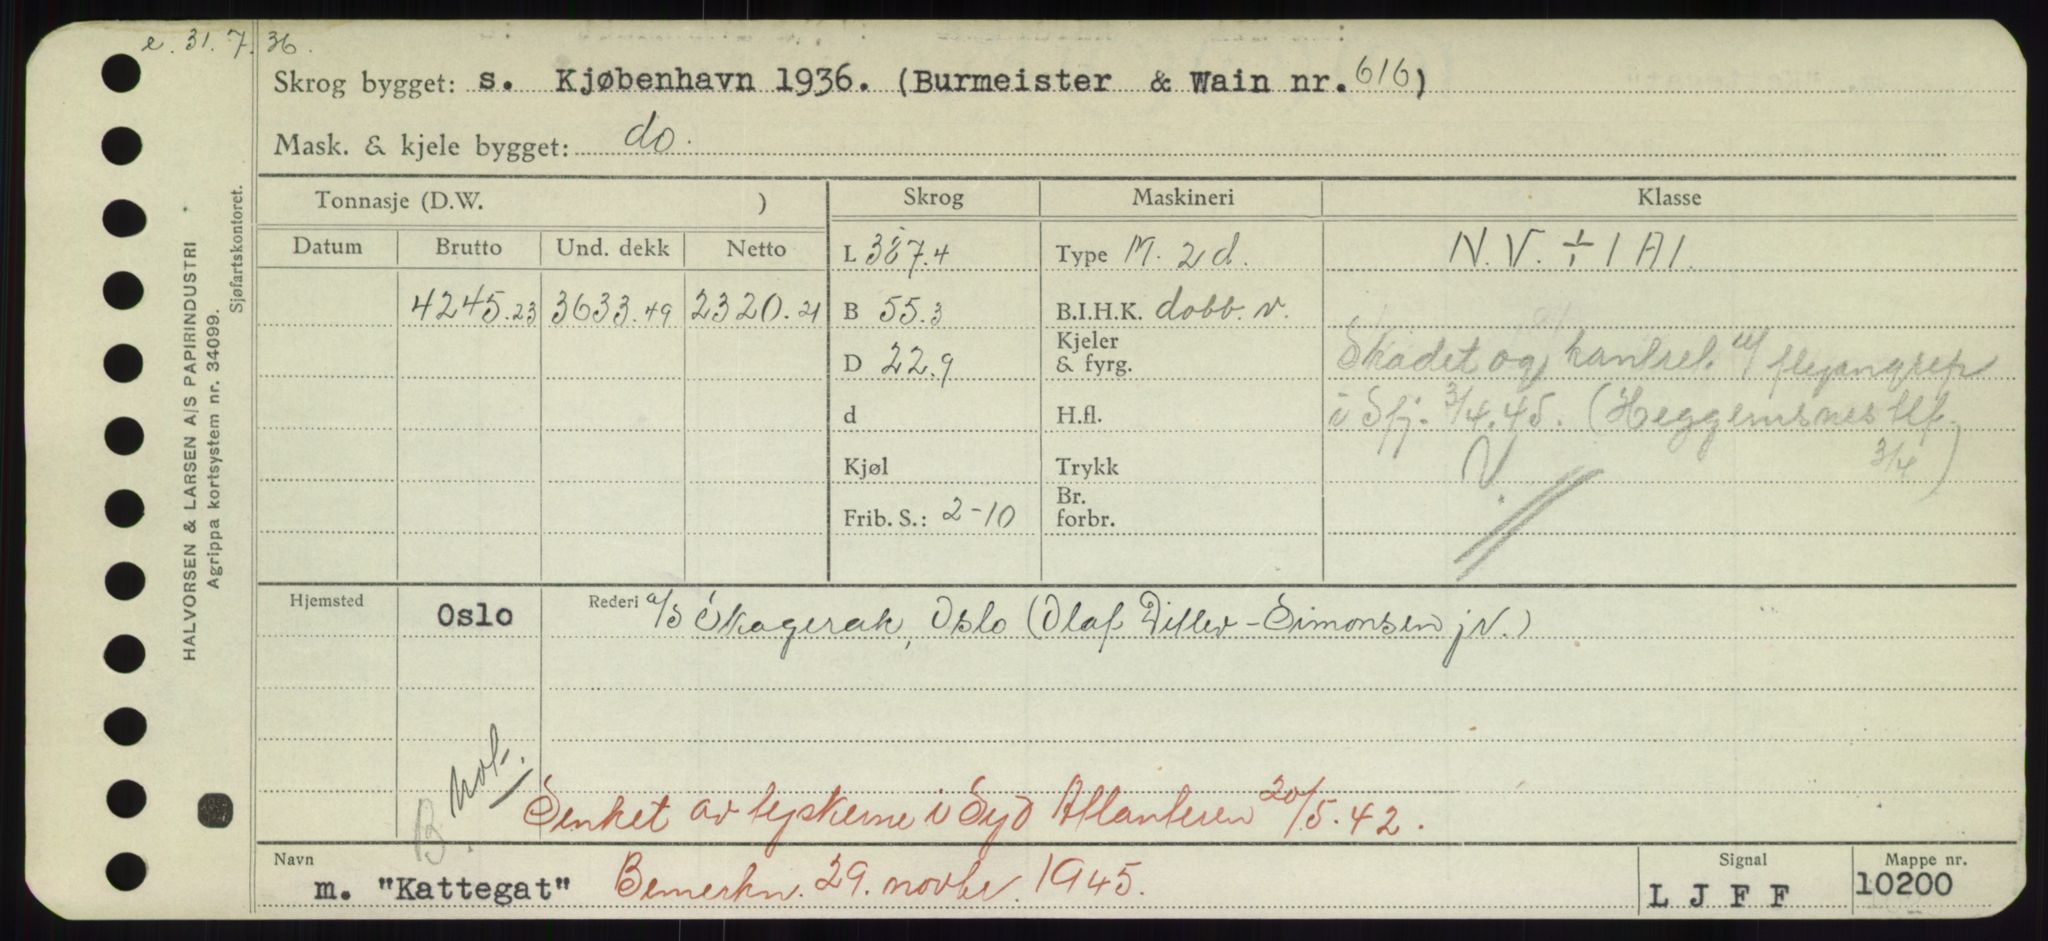 e. 31. 7. 36.
Skrog bygget: s. Kjøbenhavn 1936. (Burmeister & Wain nr. 616)
Mask. & kjele bygget: do.
Tonnasje (D.W. ) Skrog Maskineri Klasse
Datum Brutto Und. dekk Netto L 387.4 Type M. 2d. N.V. ÷ 1 A1.
4245.23 3633.49 2320.21 B 55.3 B.I.H.K. dobb. v.
D 22.9 Kjeler & fyrg. Skadet og kantret flyangrep
d H.fl. i Sfj. 3/4.45. (Heggemsnes tlf. 3/4)
Kjøl Trykk
Frib. S.: 2-10 Br. forbr.
Hjemsted Oslo Rederi a/s Skagerak, Oslo (Olaf Ditlev-Simonsen jr.)
B. not.
Senket av tyskerne i Syd Atlanteren 20/5.42.
Navn m. "Kattegat" Bemerkn. 29. novbr. 1945.
Signal L J F F
Mappe nr. 10200
HALVORSEN & LARSEN A/S PAPIRINDUSTRI
Agrippa kortsystem nr. 34099.
Sjøfartskontoret.